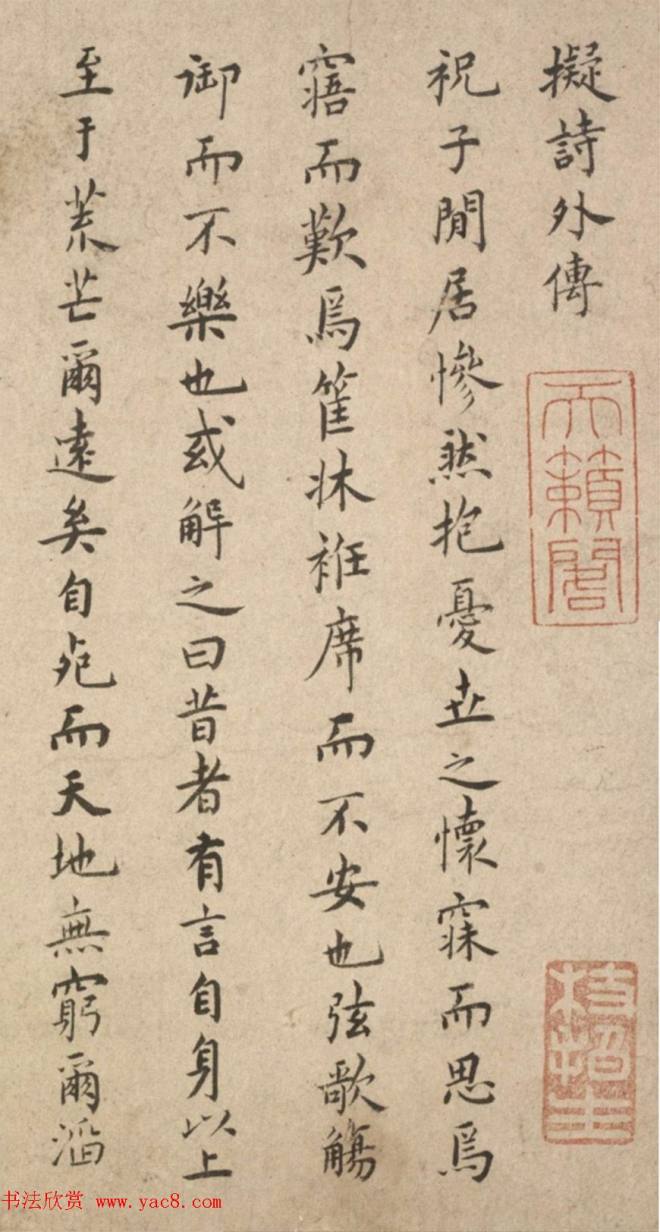 擬詩外傳
天籟閣
枝指生
祝子閒居慘然抱憂世之懷寐而思焉
寤而歎焉筐牀袵席而不安也弦歌觴
御而不樂也或解之曰昔者有言自身以上
至于荒芒爾遠矣自死而天地無窮爾滔
书法欣赏 www.yac8.com